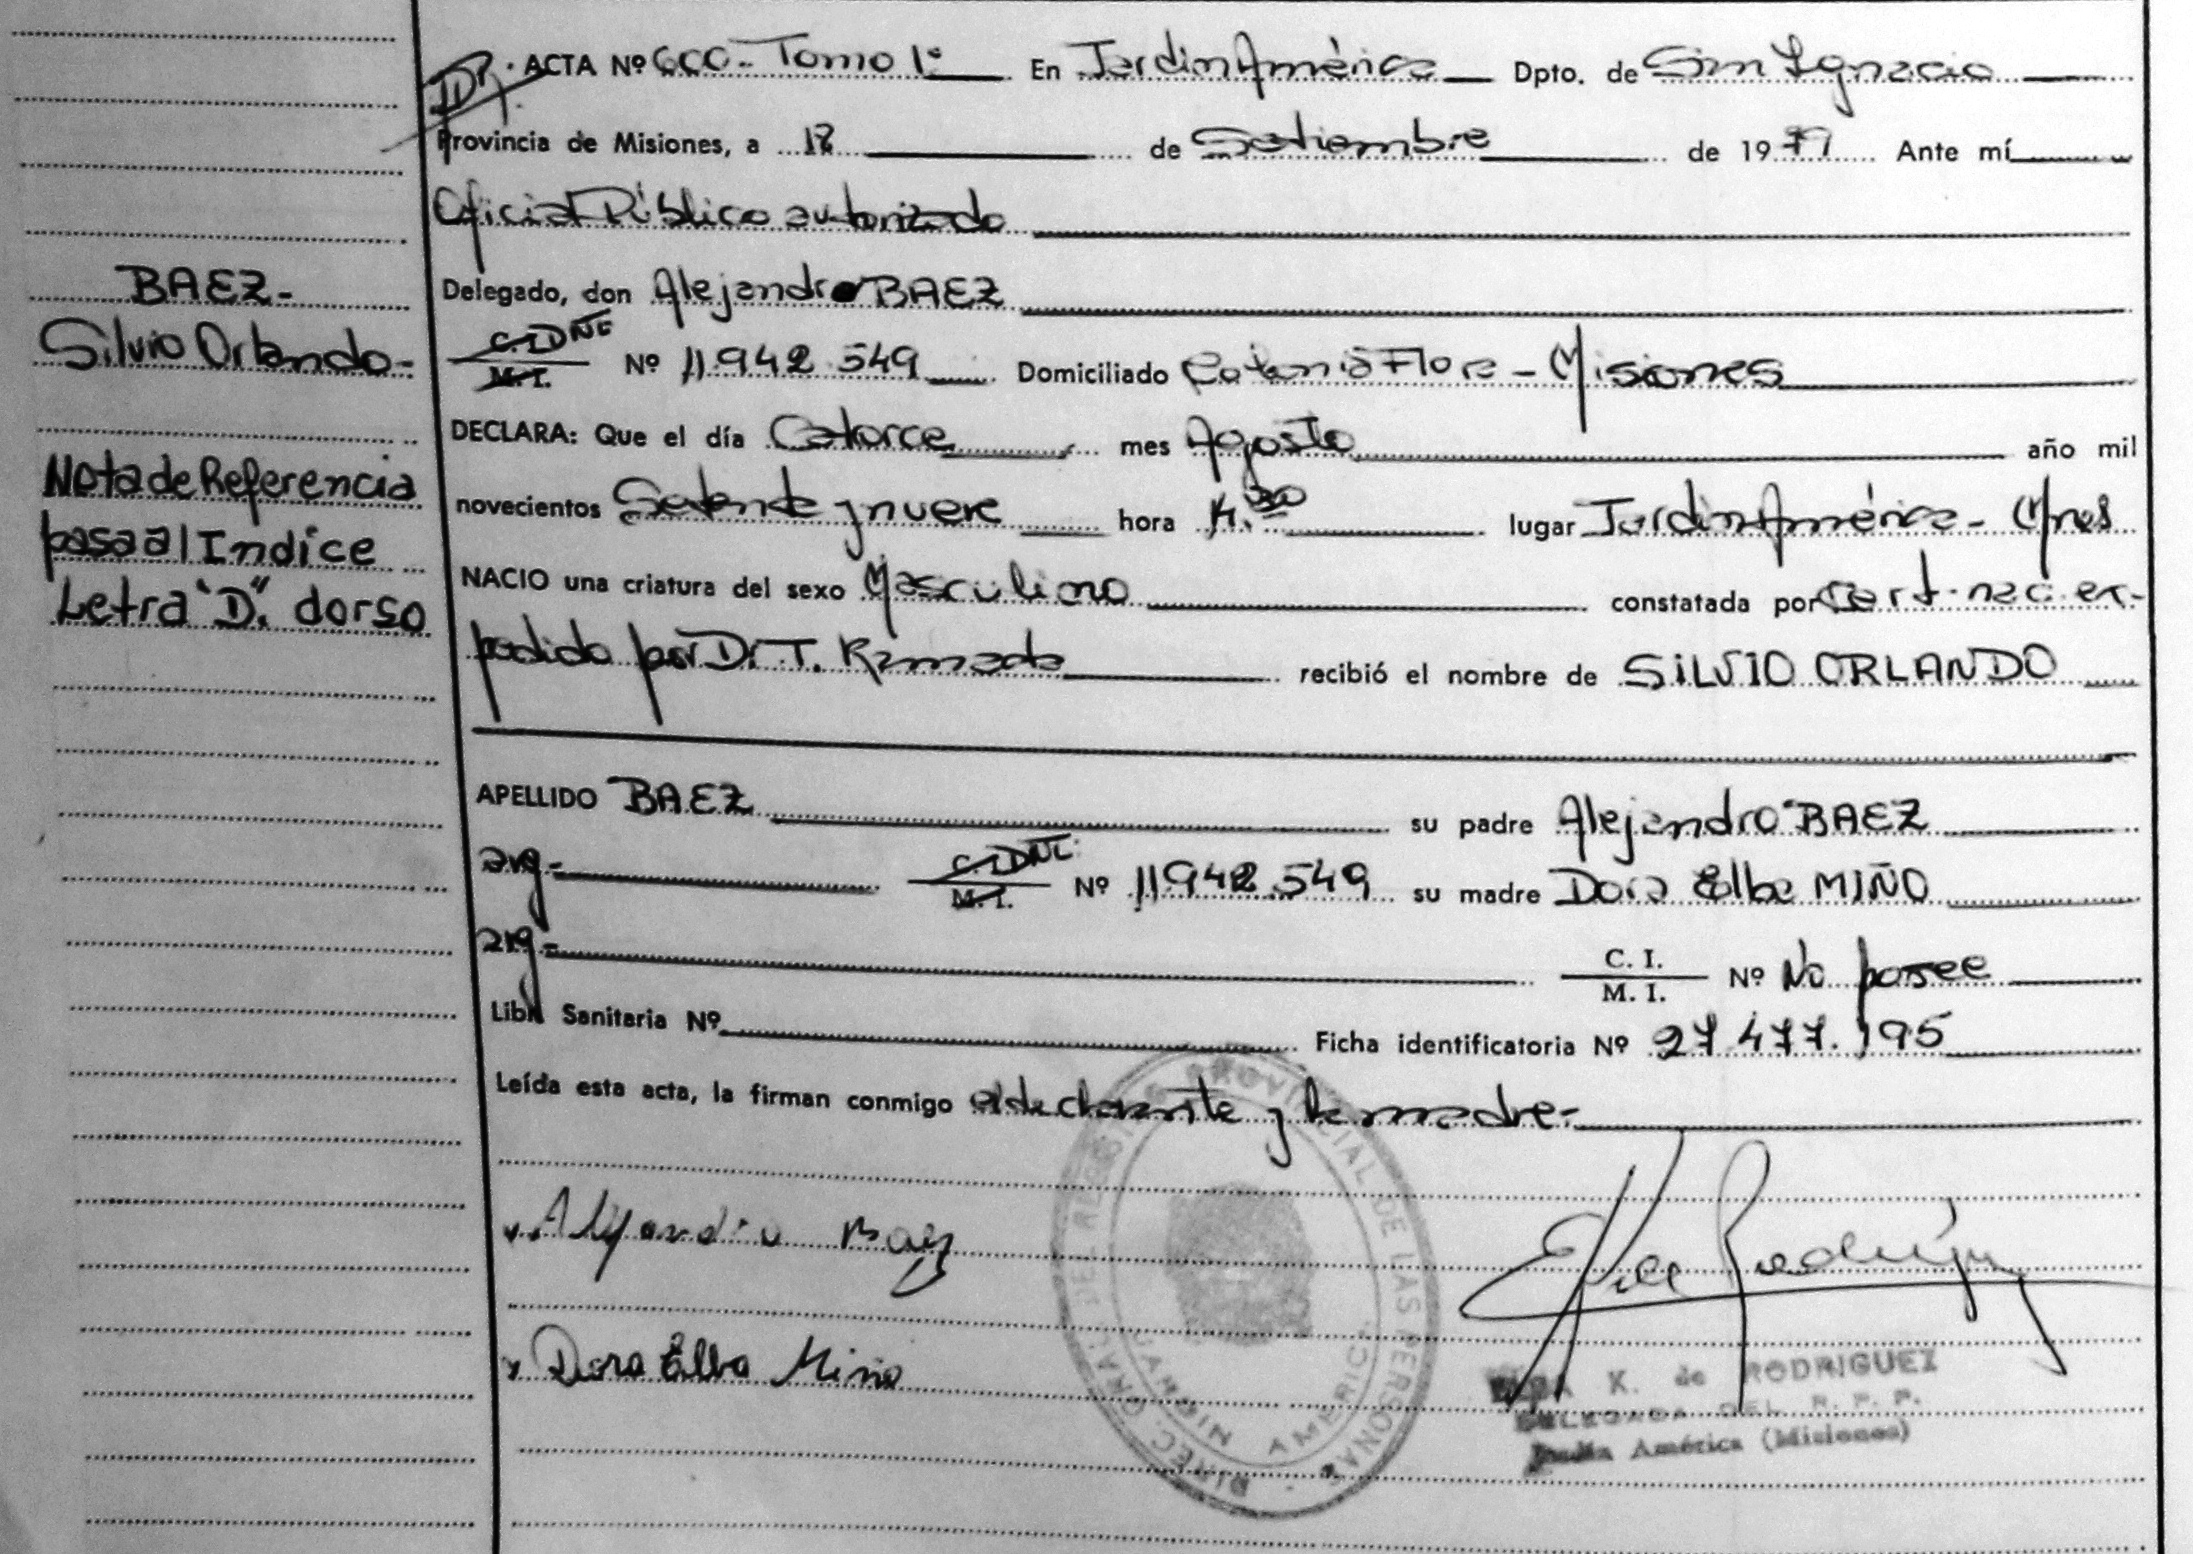 BAEZ-
Silvio Orlando-
Nota de Referencia
pasa al Indice
Letra "D". dorso
ACTA Nº 600- Tomo 1º En Jardin América Dpto. de San Ignacio
Provincia de Misiones, a de Setiembre de 1979 Ante mí
Oficial Público autorizado
Delegado, don Alejandro BAEZ
C.I. DNI
M. I. Nº 11.942.549 Domiciliado Colonia Flora - Misiones
DECLARA: Que el día Catorce mes Agosto año mil
novecientos Setenta y nueve hora lugar Jardin América - Mnes
NACIO una criatura del sexo Masculino constatada por Cert. nac. ex-
pedido por Dr. T. recibió el nombre de SILVIO ORLANDO
APELLIDO BAEZ su padre Alejandro BAEZ
arg- C.I. DNI. M. I. Nº 11.942.549 su madre Dora Elba MIÑO
arg- C. I. M. I. Nº No posee
Libr. Sanitaria Nº Ficha identificatoria Nº 27.477.195
Leída esta acta, la firman conmigo el declarante y la madre-
Alejandro Baez
Dora Elba Miño
DIREC. GRAL. DE REGISTRO PROVINCIAL DE LAS PERSONAS
JARDIN AMERICA
K. de RODRIGUEZ
DELEGADA DEL R. P. P.
Jardín América (Misiones)